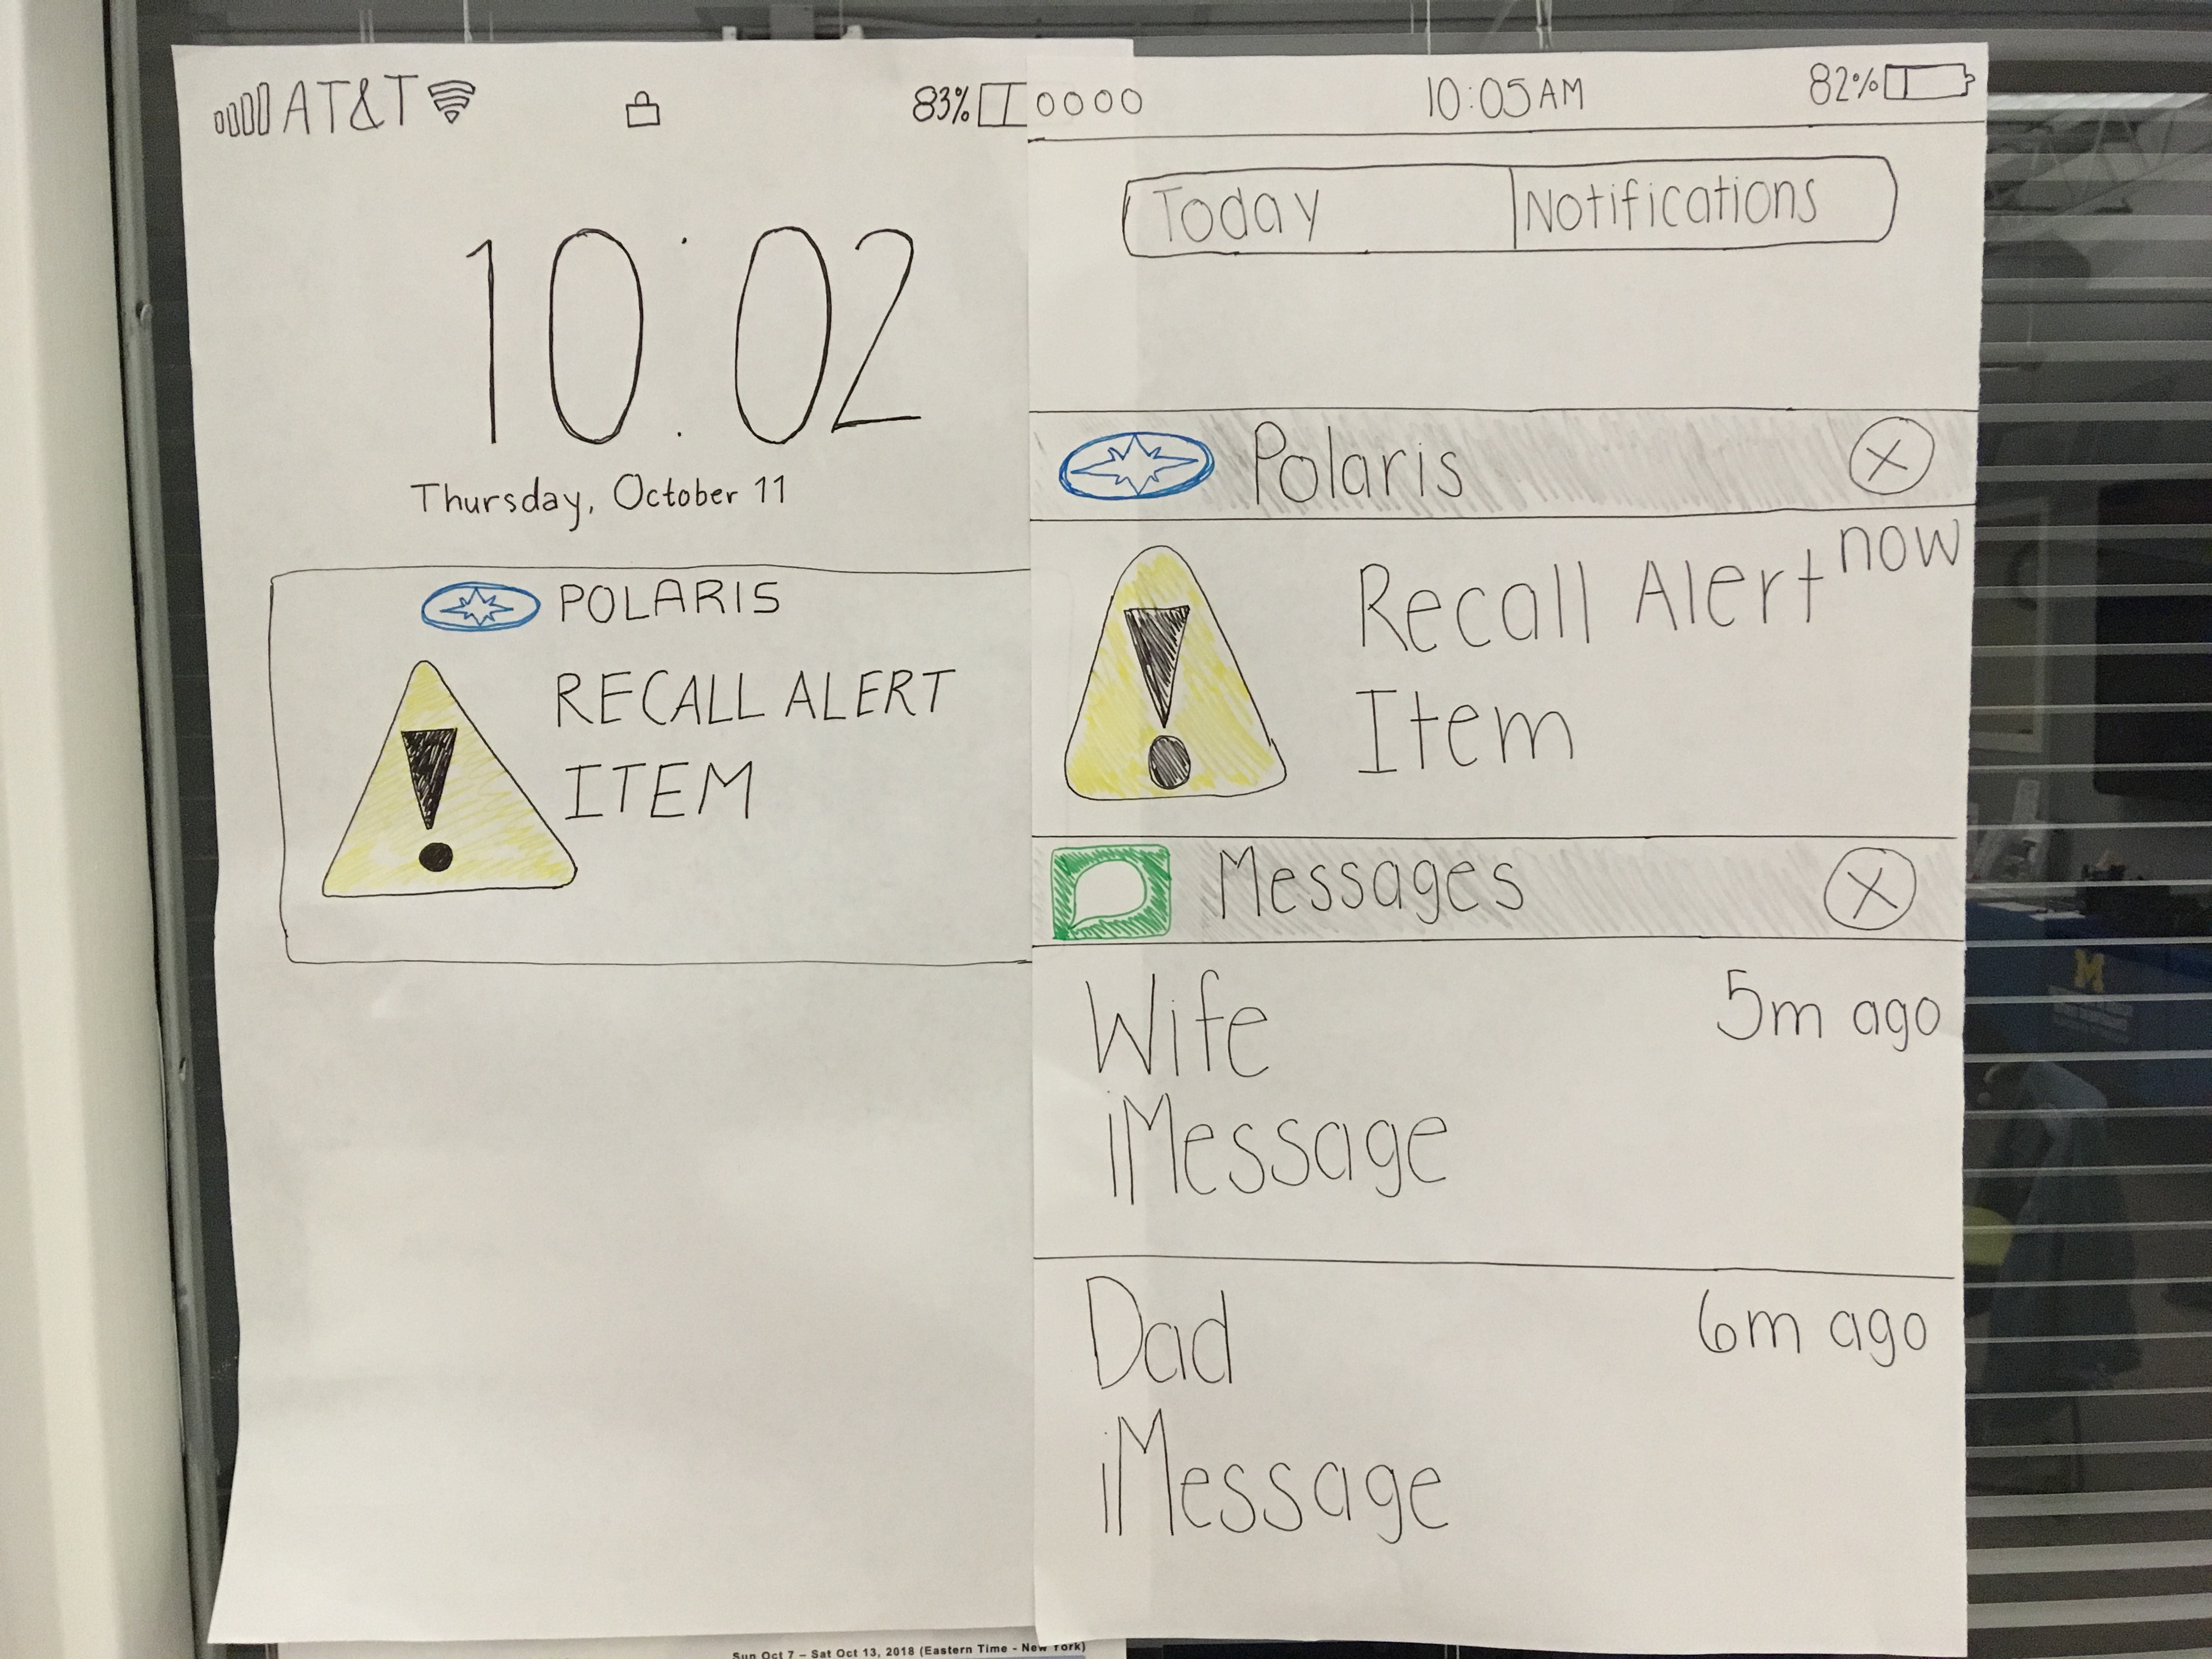 AT&T 83%
10:02
Thursday, October 11
POLARIS
RECALL ALERT
ITEM
10:05AM 82%
Today Notifications
Polaris X
Recall Alert now
Item
Messages X
Wife 5m ago
iMessage
Dad 6m ago
iMessage
M
Sun Oct 7 – Sat Oct 13, 2018 (Eastern Time - New York)